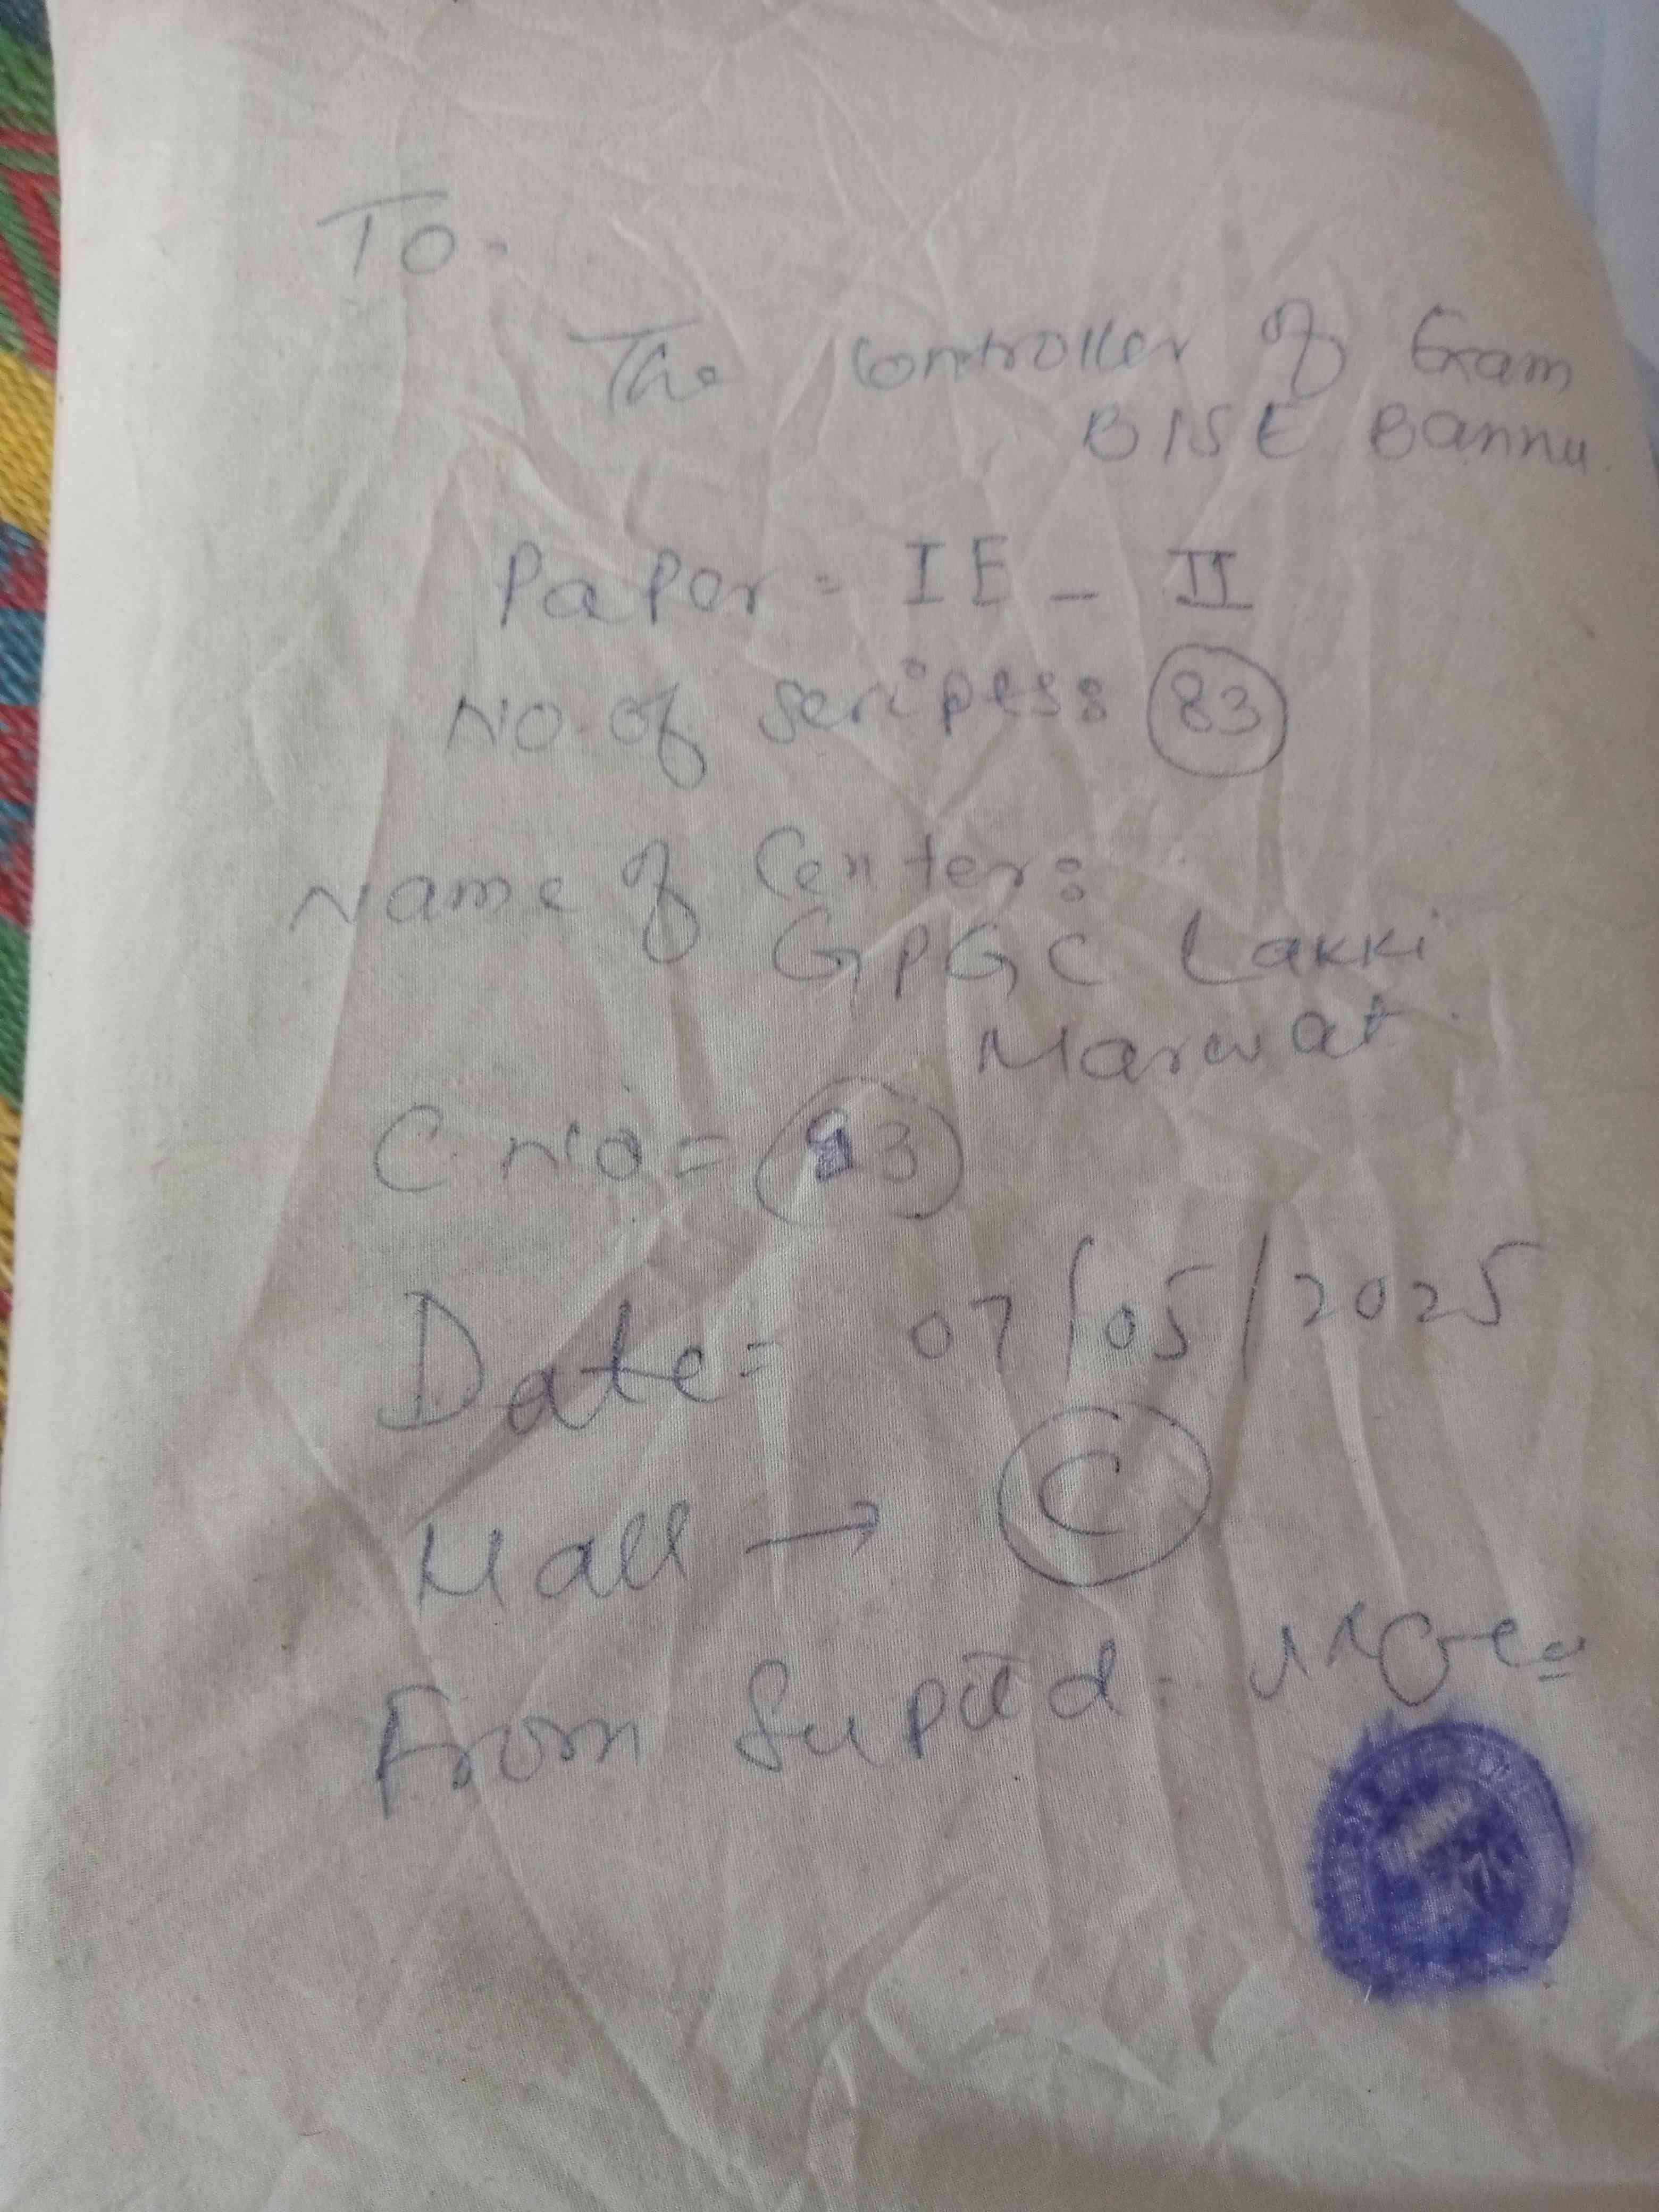 To.
The Controller of Exam
BISE Bannu
Paper = IE - II
NO. of scripts: 83
Name of Center:
GPGC Lakki
Marwat
C no =
Date = 07/05/2025
Hall → C
From Suptd: